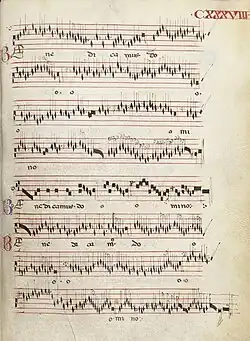 CXXXVIII
Be ne di ca mus do
o o
o mi
no
Be ne di camus do o o mino:
Be ne di ca m9 do o
o o o o
o mi no: